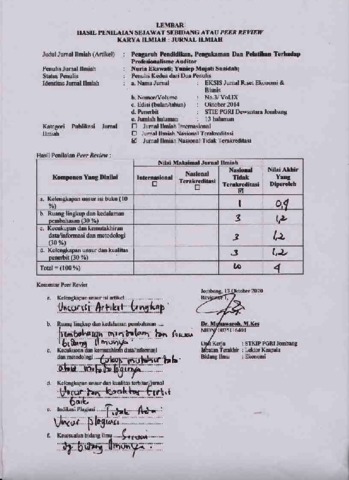 LEMBAR
HASIL PENILAIAN SEJAWAT SEBIDANG ATAU PEER REVIEW
KARYA ILMIAH : JURNAL ILMIAH
Judul Jurnal Ilmiah (Artikel) : Pengaruh Pendidikan, Pengalaman Dan Pelatihan Terhadap
Profesionalisme Auditor
Penulis Jurnal Ilmiah : Nuria Ekawati;
Status Penulis : Penulis Kedua dari Dua Penulis
Identitas Jurnal Ilmiah : a. Nama Jurnal : EKSIS Jurnal Riset Ekonomi &
Bisnis
b. Nomor/Volume : No.3/ Vol.IX
c. Edisi (bulan/tahun) : Oktober 2014
d. Penerbit : STIE PGRI Dewantara Jombang
e. Jumlah halaman : 13 halaman
Kategori Publikasi Jurnal Ilmiah : Jurnal Ilmiah Internasional
Jurnal Ilmiah Nasional Terakreditasi
Jurnal Ilmiah Nasional Tidak Terakreditasi
Hasil Penilaian Peer Review :
Komponen Yang Dinilai
Nilai Maksimal Jurnal Ilmiah
Internasional
Nasional Terakreditasi
Nasional Tidak Terakreditasi
Nilai Akhir Yang Diperoleh
a. Kelengkapan unsur isi buku (10 %) 1 0,4
b. Ruang lingkup dan kedalaman pembahasan (30 %) 3 1,2
c. Kecukupan dan kemutakhiran data/informasi dan metodologi (30 %) 3 1,2
d. Kelengkapan unsur dan kualitas penerbit (30 %) 3 1,2
Total = (100 %) 10 4
Komentar Peer Review
Jombang, 17 Oktober 2020
Reviewer
a. Kelengkapan unsur isi artikel
Artikel Lengkap
b. Ruang lingkup dan kedalaman pembahasan
Pembahasan mendalam dan sesuai
bidang Ilmunya
c. Kecukupan dan kemutakhiran data/informasi
dan metodologi
d. Kelengkapan unsur dan kualitas
Unsur dan
baik
e. Indikasi Plagiasi Tidak Ada
Unsur plagiasi
f. Kesesuaian bidang ilmu Sesuai
dg bidang Ilmunya
Unit Kerja : STKIP PGRI Jombang
: Lektor Kepala
Bidang Ilmu : Ekonomi